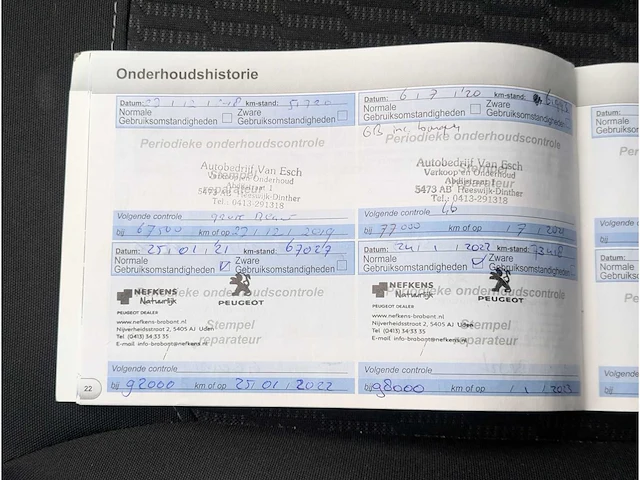 Onderhoudshistorie
Datum: km-stand:
Normale Gebruiksomstandigheden Zware Gebruiksomstandigheden
Periodieke onderhoudscontrole
Autobedrijf Van Esch
Verkoop en Onderhoud
Abdijstraat 1
5473 AB Heeswijk-Dinther
Tel.: 0413-291318
Volgende controle
bij 67500 km of op 27 12 2019
Datum: 6 1 7 1 '20 km-stand:
Normale Gebruiksomstandigheden Zware Gebruiksomstandigheden
Periodieke onderhoudscontrole
Autobedrijf Van Esch
Verkoop en Onderhoud
Abdijstraat 1
5473 AB Heeswijk-Dinther
Tel.: 0413-291318
Volgende controle
bij 77000 km of op
Datum: 25 01 '21 km-stand: 67027
Normale Gebruiksomstandigheden Zware Gebruiksomstandigheden
Periodieke onderhoudscontrole
NEFKENS
Natuurlijk
PEUGEOT
PEUGEOT DEALER
www.nefkens-brabant.nl
Nijverheidsstraat 2, 5405 AJ Uden
Tel (0413) 34 33 35
E-mail info-brabant@nefkens.nl
Stempel
reparateur
Volgende controle
bij 92000 km of op 25 01 2022
Datum: 24 1 2022 km-stand:
Normale Gebruiksomstandigheden Zware Gebruiksomstandigheden
Periodieke onderhoudscontrole
NEFKENS
Natuurlijk
PEUGEOT
PEUGEOT DEALER
www.nefkens-brabant.nl
Nijverheidsstraat 2, 5405 AJ Uden
Tel (0413) 34 33 35
E-mail info-brabant@nefkens.nl
Stempel
reparateur
Volgende controle
bij 98000 km of op 1 1 2023
22